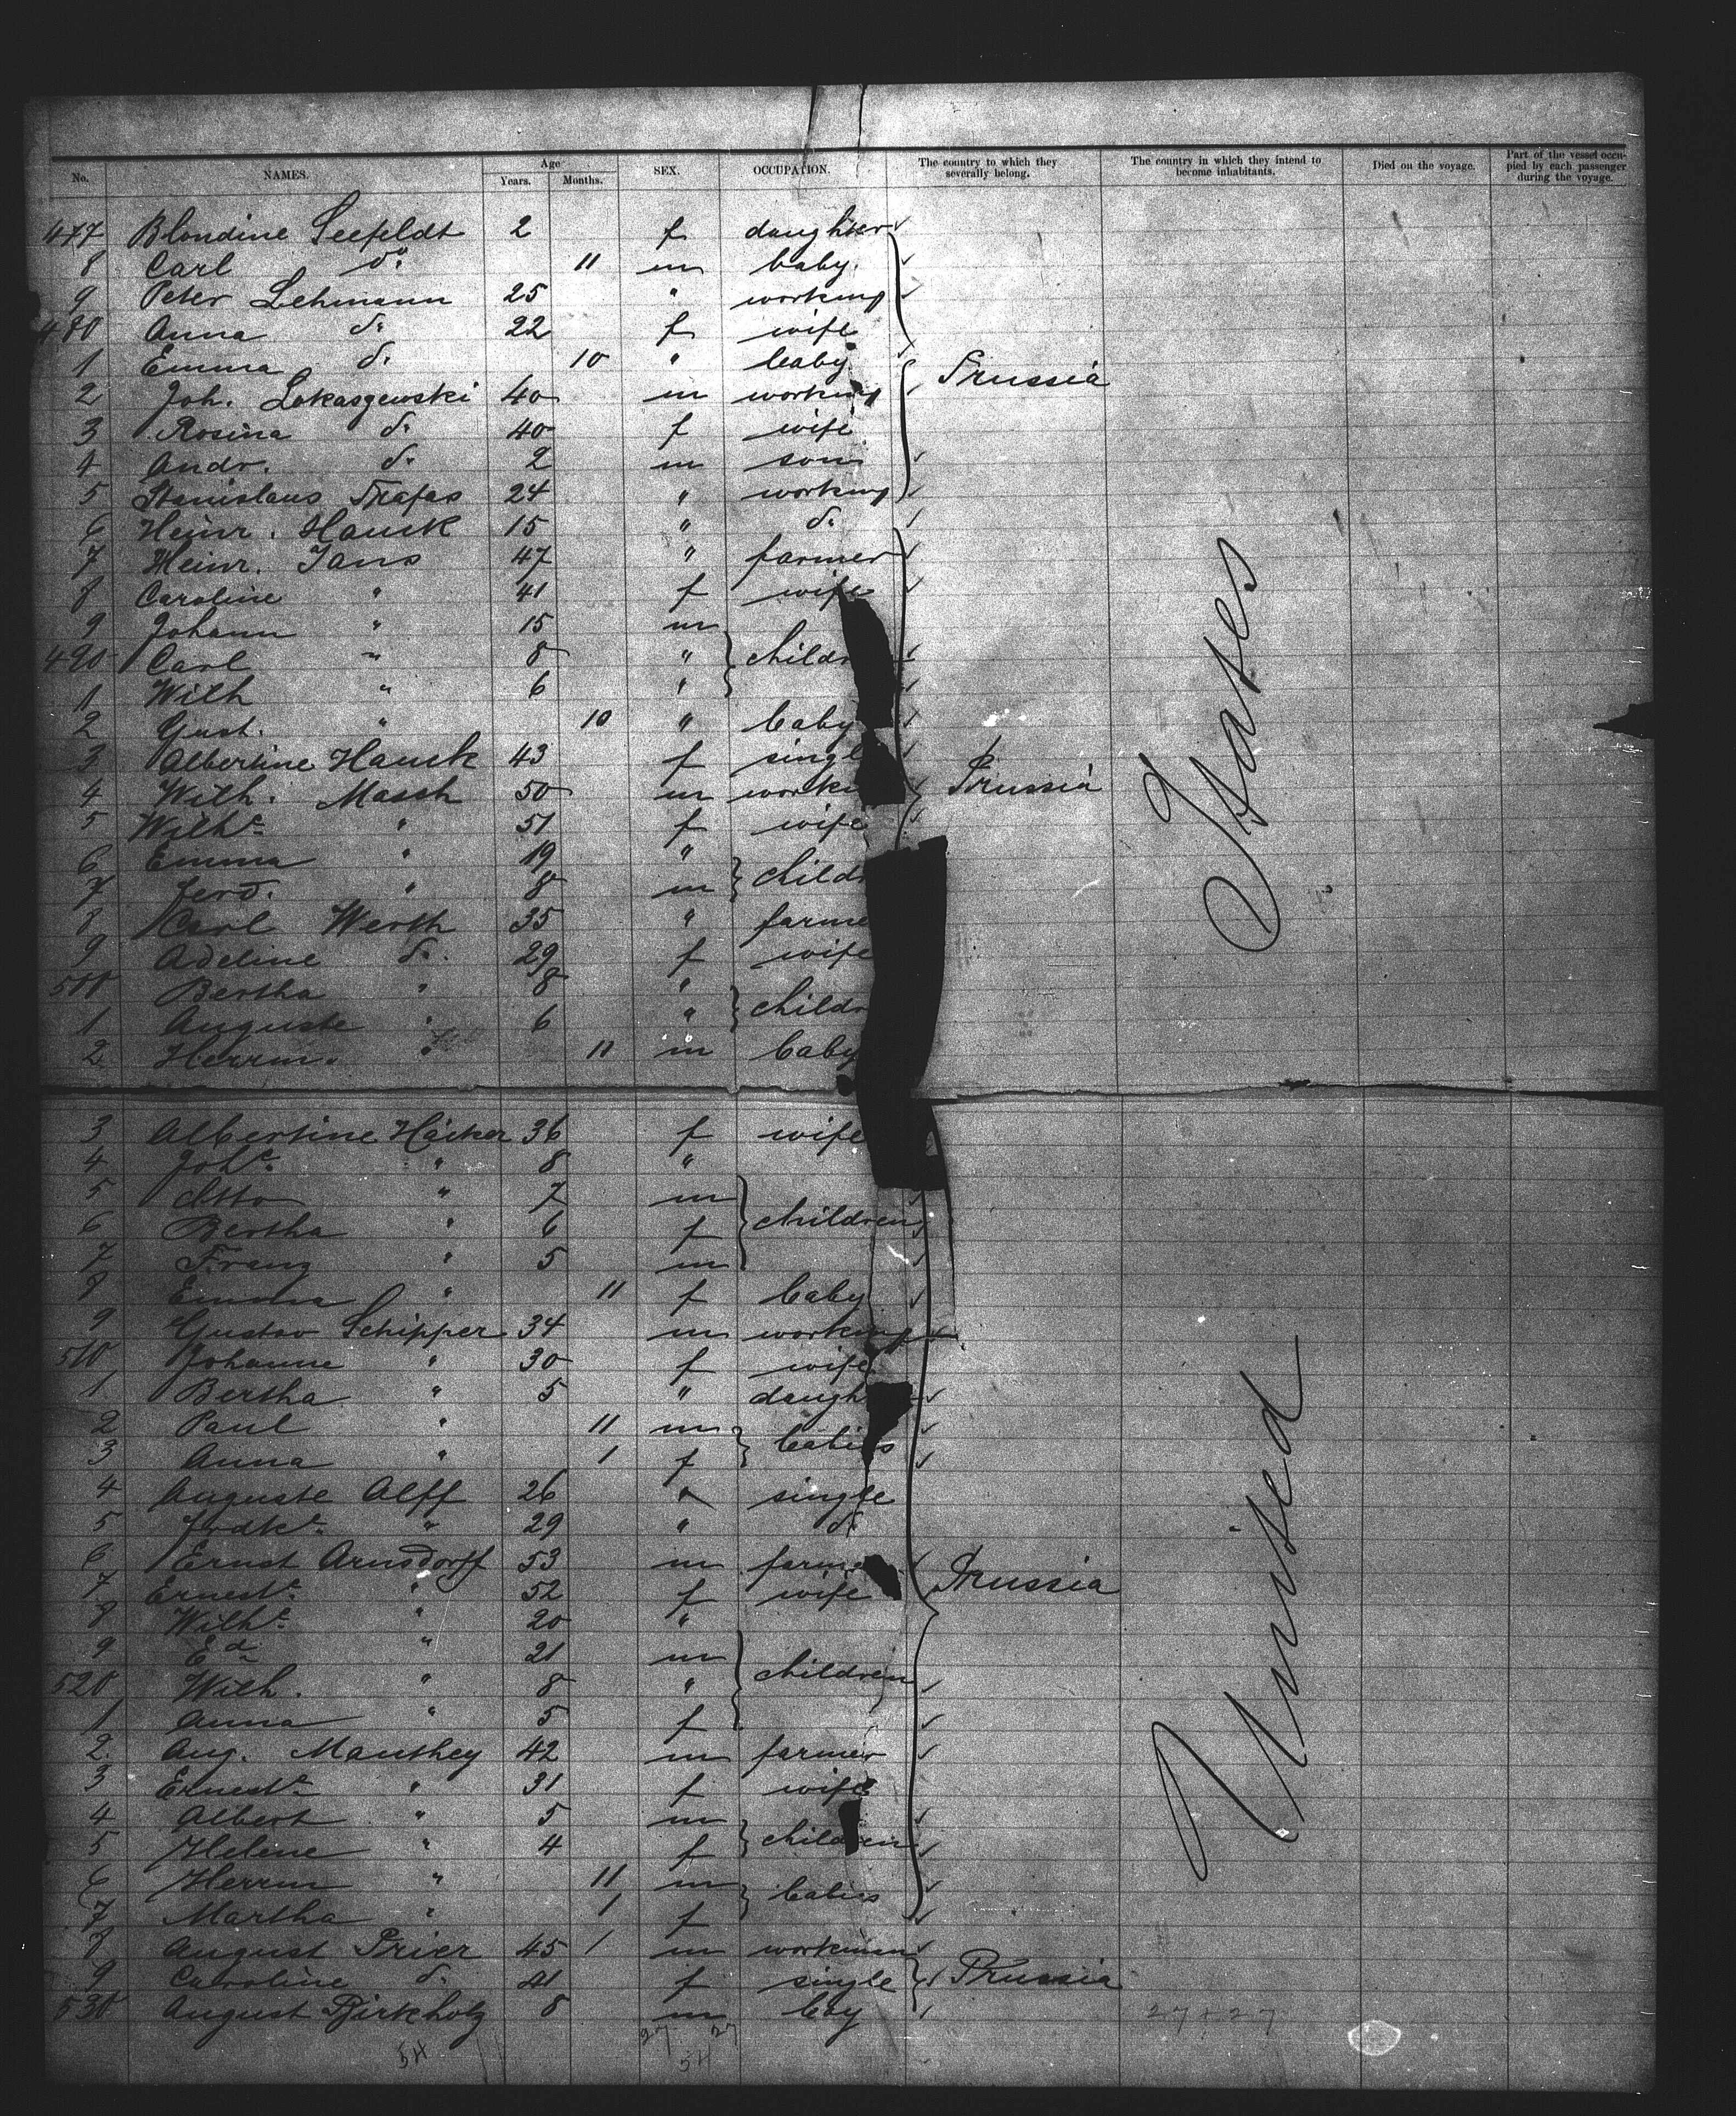 No. NAMES. Age Years. Months. SEX. OCCUPATION. The country to which they severally belong. The country in which they intend to become inhabitants. Died on the voyage. Part of the vessel occupied by each passenger during the voyage.
477 Blondine Seefeldt 2 f daughter
8 Carl do 11 m baby
9 Peter Lehmann 25 " working
480 Anna d. 22 f wife
1 Emma d. 10 " baby Prussia
2 Joh. Lokaszewski 40 m working
3 Rosina d. 40 f wife
4 Andr. d. 2 m son
5 Stanislaus Trafas 24 " working
6 Heinr. Hauck 15 " d.
7 Heinr. Jans 47 " farmer
8 Caroline " 41 f wife
9 Johann " 15 m
490 Carl " 8 " childr
1 Wilh " 6 "
2 Gust. " 10 " baby
3 Albertine Hauck 43 f singl
4 Wilh. Massh 50 m workin Prussia
5 Wilhe " 51 f wife
6 Emma " 19 "
7 Ferd. " 8 m childr
8 Carl Werth 35 " farme
9 Adeline d. 29 f wife
500 Bertha " 8 "
1 Auguste " 6 " childr
2 Herrm. " 11 m baby
3 Albertine Häcker 36 f wife
4 Johe " 8 "
5 Otto " 7 m
6 Bertha " 6 f children
7 Franz " 5 m
8 Emma " 11 f baby
9 Gustav Schipper 34 m working
510 Johanne " 30 f wife
1 Bertha " 5 " daugh
2 Paul " 11 m
3 Anna " 1 f babies
4 Auguste Alff 26 " single
5 Fredke " 29 " d.
6 Ernst Arnsdorff 53 m farme
7 Erneste " 52 f wife Prussia
8 Wilhe " 20 "
9 Ed " 21 m
520 Wilh. " 8 " children
1 Anna " 5 f
2 Aug. Manthey 42 m farmer
3 Erneste " 31 f wife
4 Albert " 5 m
5 Helene " 4 f children
6 Herrm " 11 m
7 Martha " 1 f babies
8 August Prier 45 1 m workman
9 Caroline d. 41 f single Prussia
530 August Birkholz 8 m boy
United States
27+27
27 27
54 54